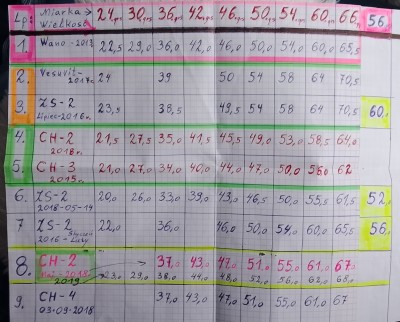 Lp: Miarka → 24,ps 30,ps 36,ps 42,ps 46,ps 50,ps 54,ps 60,ps 66,ps 56
Wielkość
1. Wano-2018 22,5 29,0 36,0 42,0 46,0 50,0 54,0 60,0 65,5
2. Vesuvit- 24 39 50 54 58 64 70,5
2017r.
3. ZS-2 23,5 38,5 49,5 54 58 64 70,5 60,0
Lipiec-2016r.
4. CH-2 21,5 27,5 35,0 41,5 45,5 49,0 53,0 58,5 64,0
2018r.
5. CH-3 21,0 27,0 34,0 40,0 44,0 47,0 50,0 56,0 62
2015r.
6. ZS-2 20,0 26,0 33,0 39,0 43,0 46,5 50,0 55,5 61,5 52,0
2018-05-14
7 ZS-2 22,0 36,0 46,0 50,0 54,0 60,0 65,5 56,0
2016-Luty
8. CH-2 37,0 43,0 47,0 51,0 55,0 61,0 67,0
2019 23,0 29,0 38,0 44,0 48,0 52,0 56,0 62,0 68,0
9. CH-4 37,0 43,0 47,0 51,0 55,0 61,0 67
03-09-2018